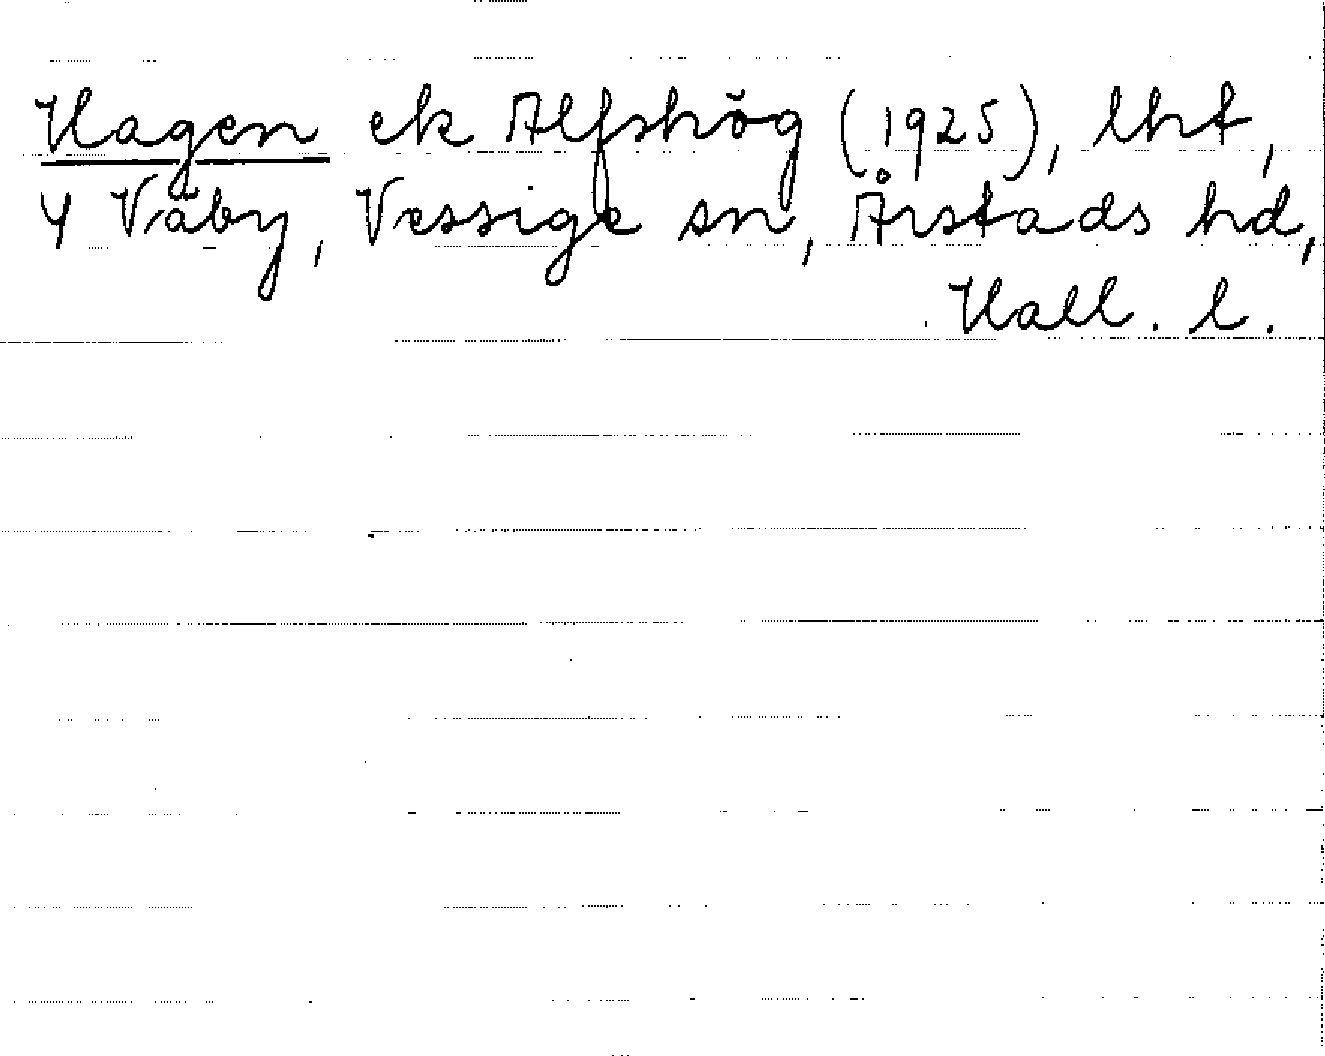 Hagen ek Alfshög (1925), lht,
4 Väby, Vessige sn, Årstads hd,
Hall. l.